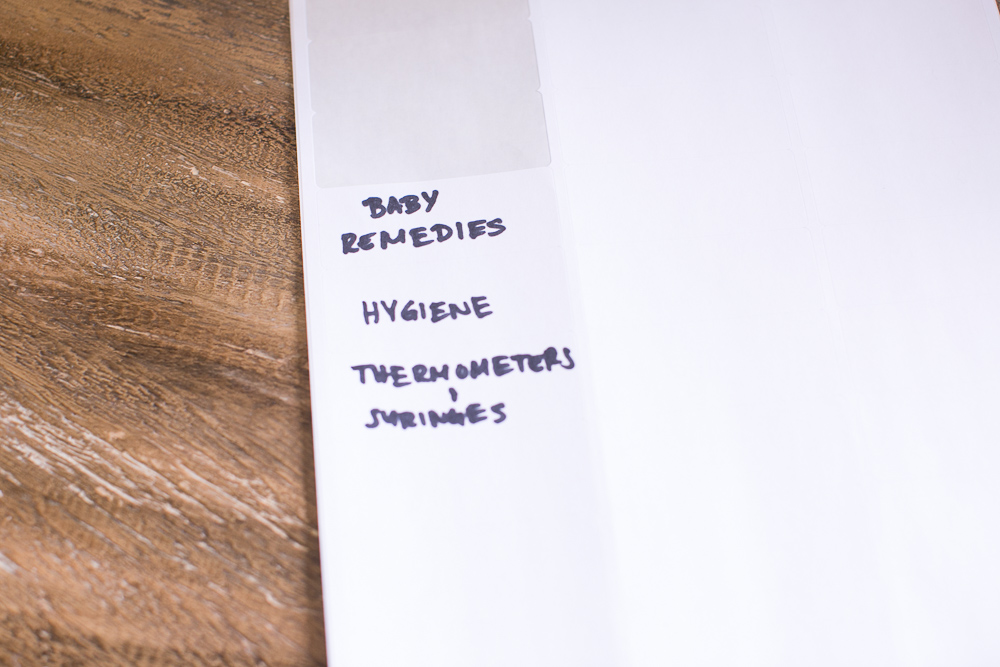 BABY
REMEDIES
HYGIENE
THERMOMETERS
&
SYRINGES